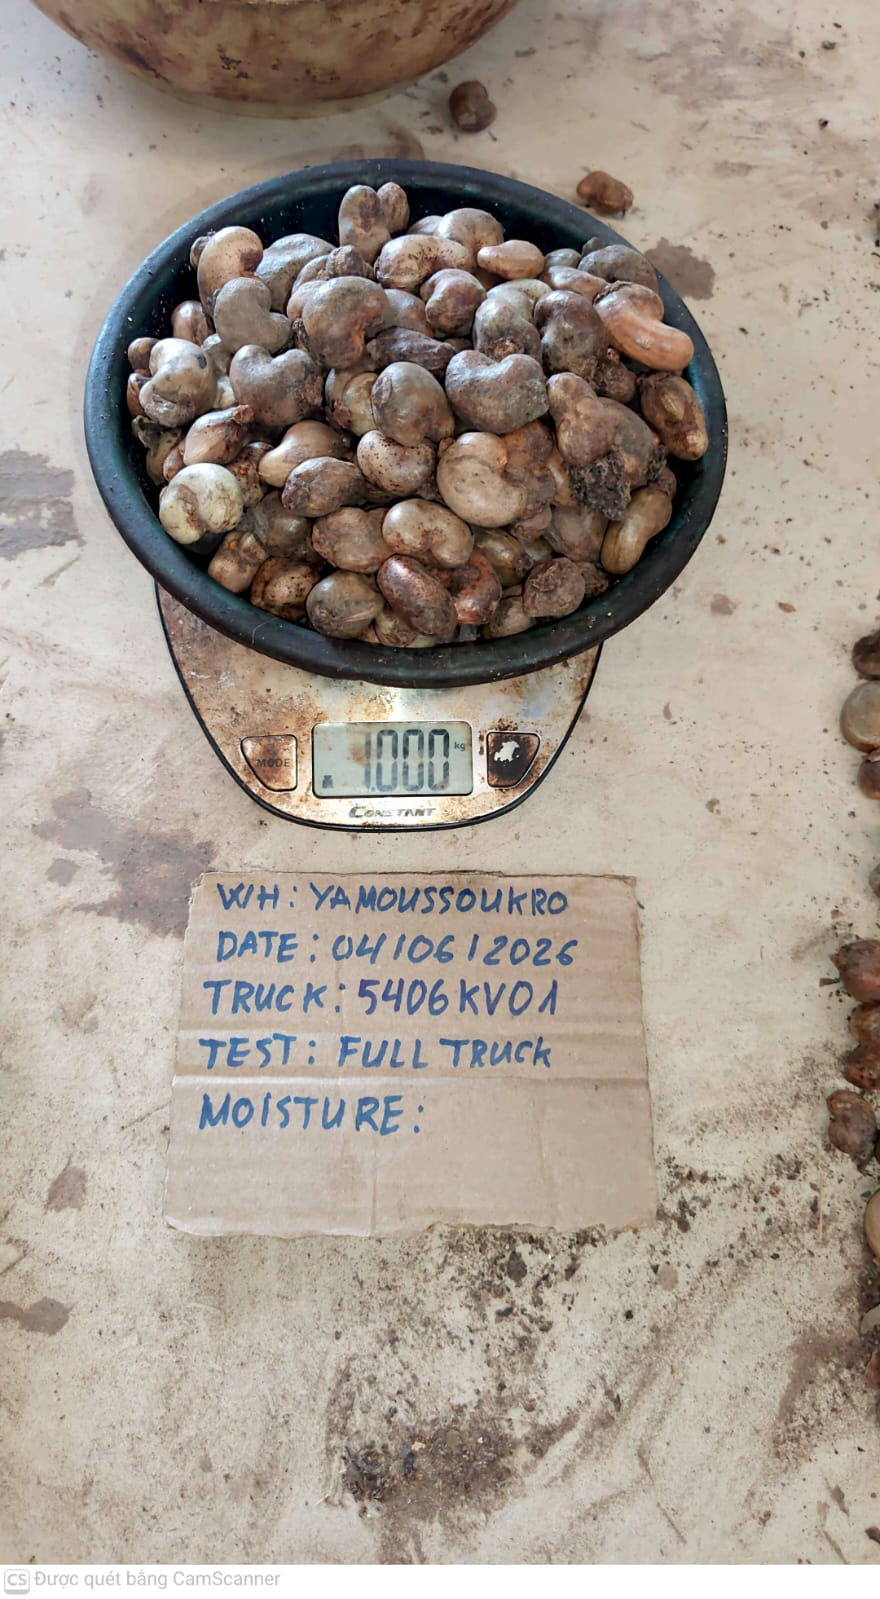 MODE
1.000 kg
CONSTANT
W/H: YAMOUSSOUKRO
DATE: 04/06/2026
TRUCK: 5406KV01
TEST: FULL TRUCK
MOISTURE:
CS Được quét bằng CamScanner